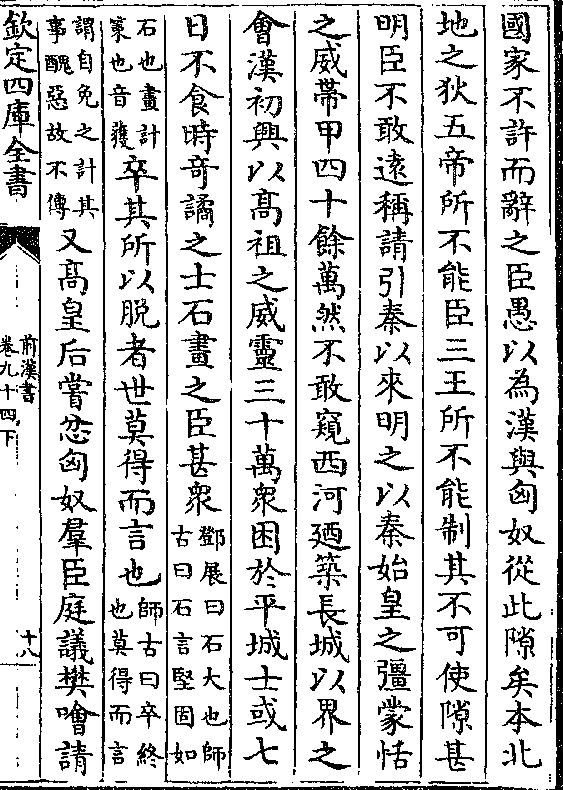 國家不許而辭之臣愚以為漢與匈奴從此隙矣本北
地之狄五帝所不能臣三王所不能制其不可使隙甚
明臣不敢遠稱請引秦以來明之以秦始皇之彊蒙恬
之威帶甲四十餘萬然不敢窺西河廼築長城以界之
會漢初興以髙祖之威靈三十萬衆困於平城士或七
日不食時竒譎之士石畫之臣甚衆鄧展曰石大也師古曰石言堅固如
石也畫計策也音獲卒其所以脱者世莫得而言也師古曰卒終也莫得而言
謂自免之計其事醜惡故不傳又髙皇后嘗忿匈奴羣臣庭議樊噲請
欽定四庫全書
前漢書
卷九十四下
十八